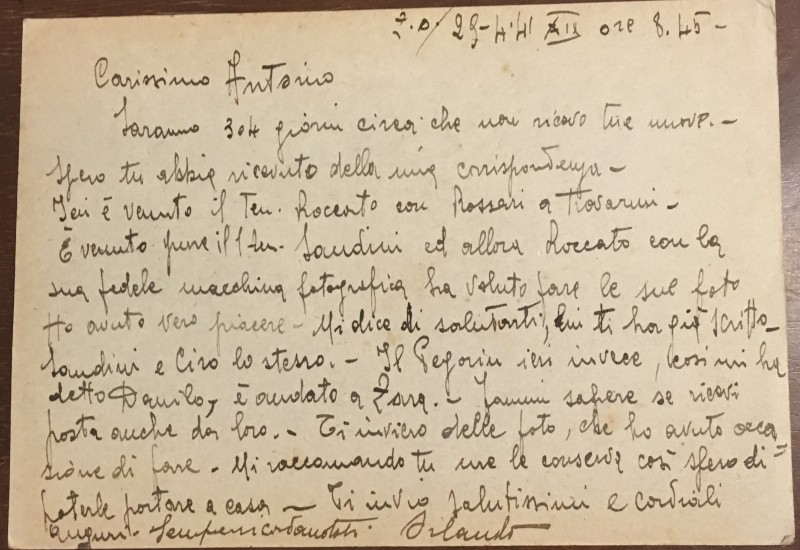 29-4-41 XIX ore 8.45 -
Carissimo Antonio
Saranno 3 o 4 giorni circa che non ricevo tue nuove. -
Spero tu abbia ricevuto della mia corrispondenza -
Ieri è venuto il Ten. Roccato con Rossari a trovarmi -
È venuto pure il Ten. Sandini ed allora Roccato con la
sua fedele macchina fotografica ha voluto fare le sue foto
Ho avuto vero piacere - Mi dice di salutarti, lui ti ha già scritto
Sandini e Ciro lo stesso. - Il Pegorin ieri invece, così mi ha
detto Danilo, è andato a Zara. - Fammi sapere se ricevi
posta anche da loro. - Ti invierò delle foto, che ho avuto occa
sione di fare - Mi raccomando tu me le conservi così spero di
poterle portare a casa - Ti invio salutissimi e cordiali
auguri - Sempre ricordandoti Orlando